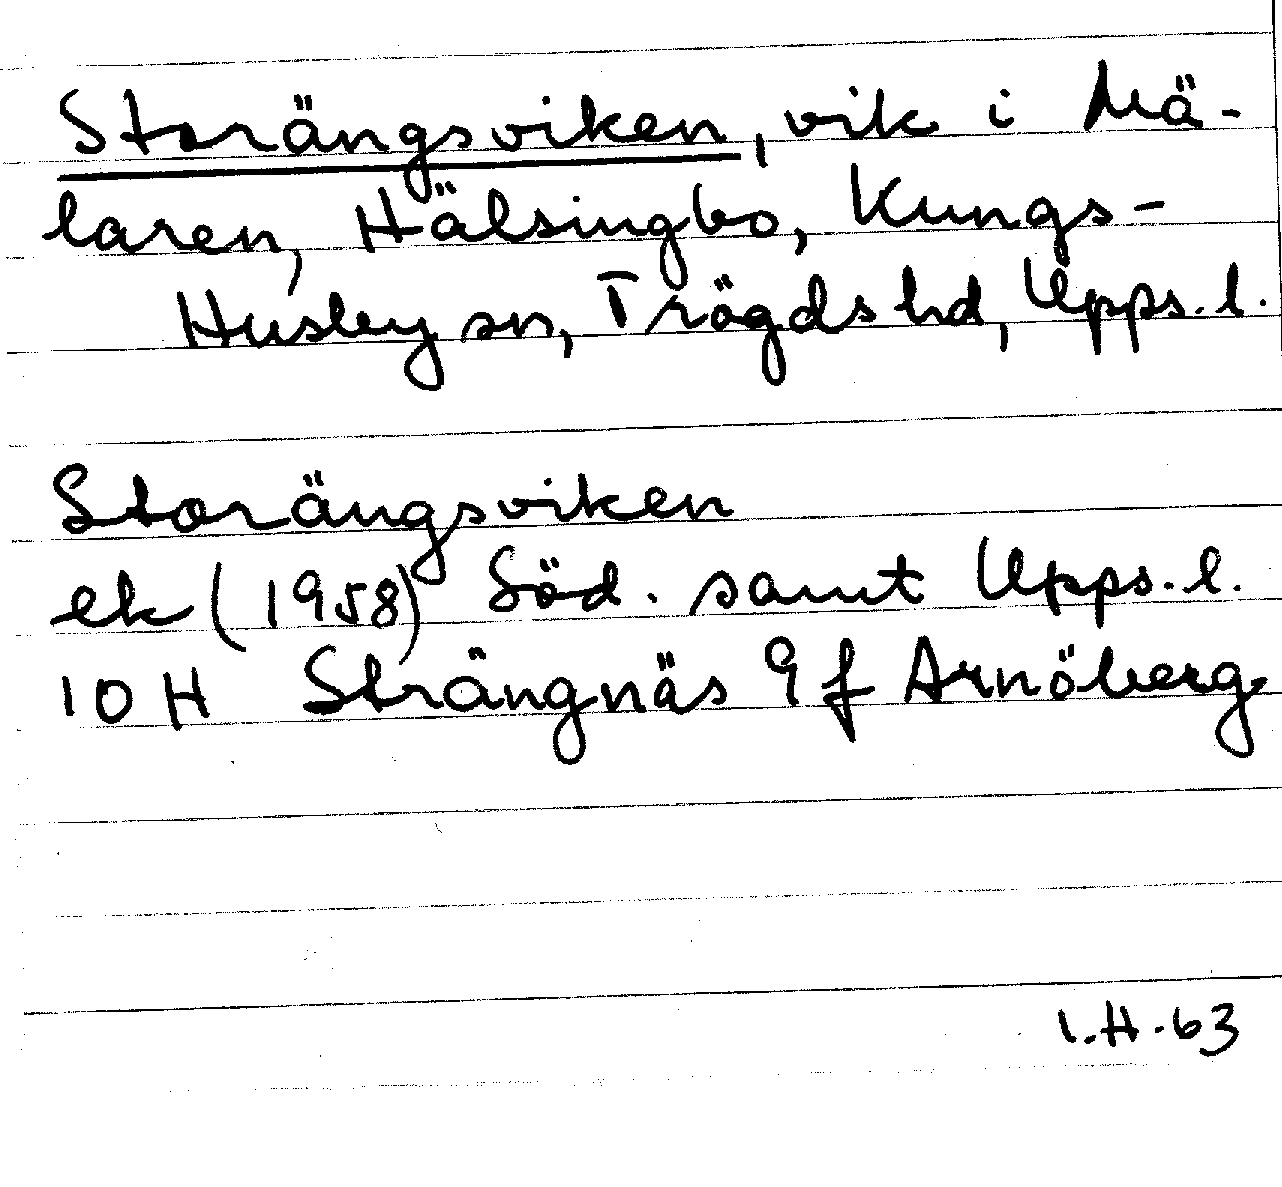 Storängsviken, vik i Mä-
laren, Hälsingbo, Kungs-
Husby sn, Trögds hd, Upps. l.
Storängsviken
ek (1958) Söd. samt Upps. l.
10 H Strängnäs 9 f Arnöberg
I.H. 63